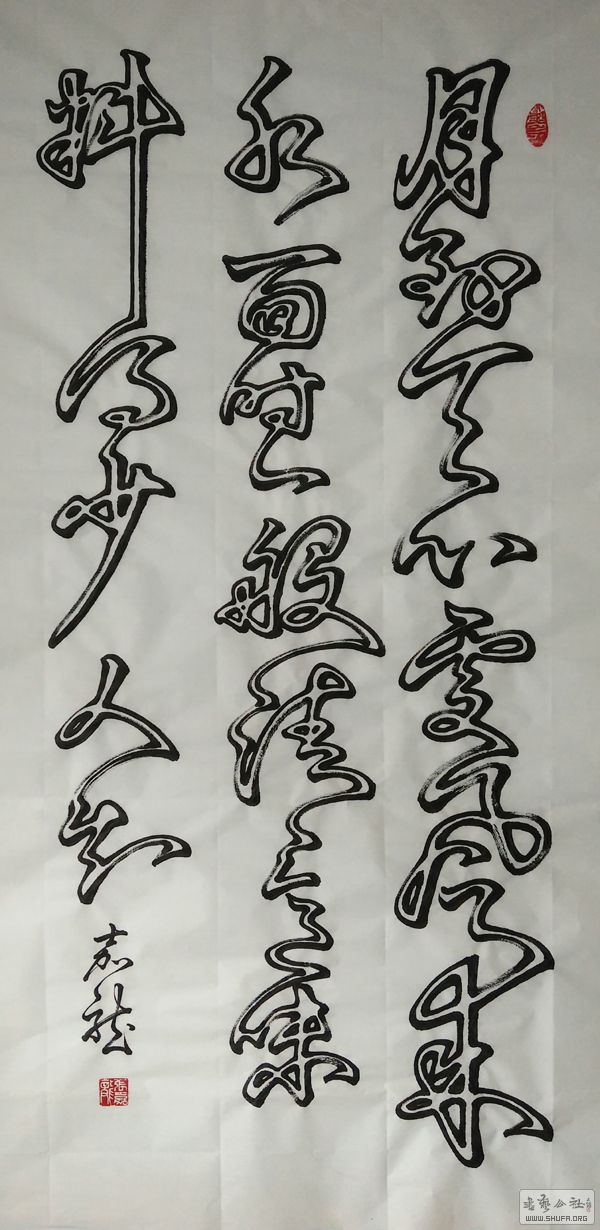 月到天心處风来
水面时一般清意味
料得少人知
嘉龍
书艺公社
WWW.SHUFA.ORG